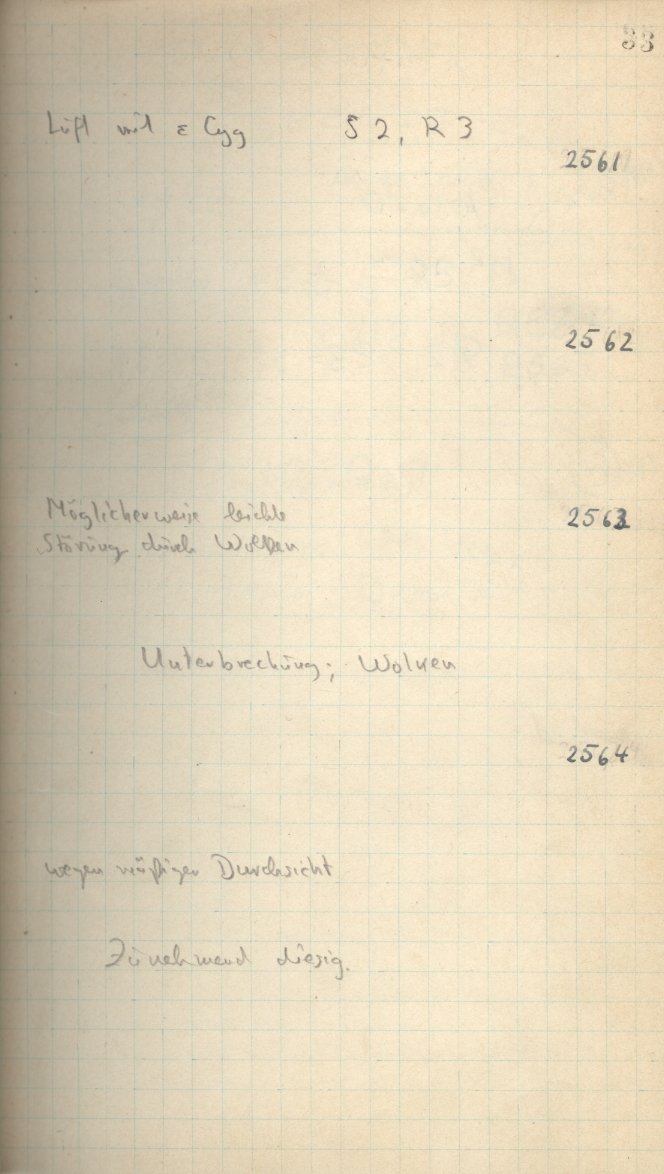 33
Luft mit ε Cyg S 2, R 3
2561
2562
Möglicherweise leichte
2563
Störung durch Wolken
Unterbrechung; Wolken
2564
wegen mäßiger Durchsicht
Zunehmend diesig.